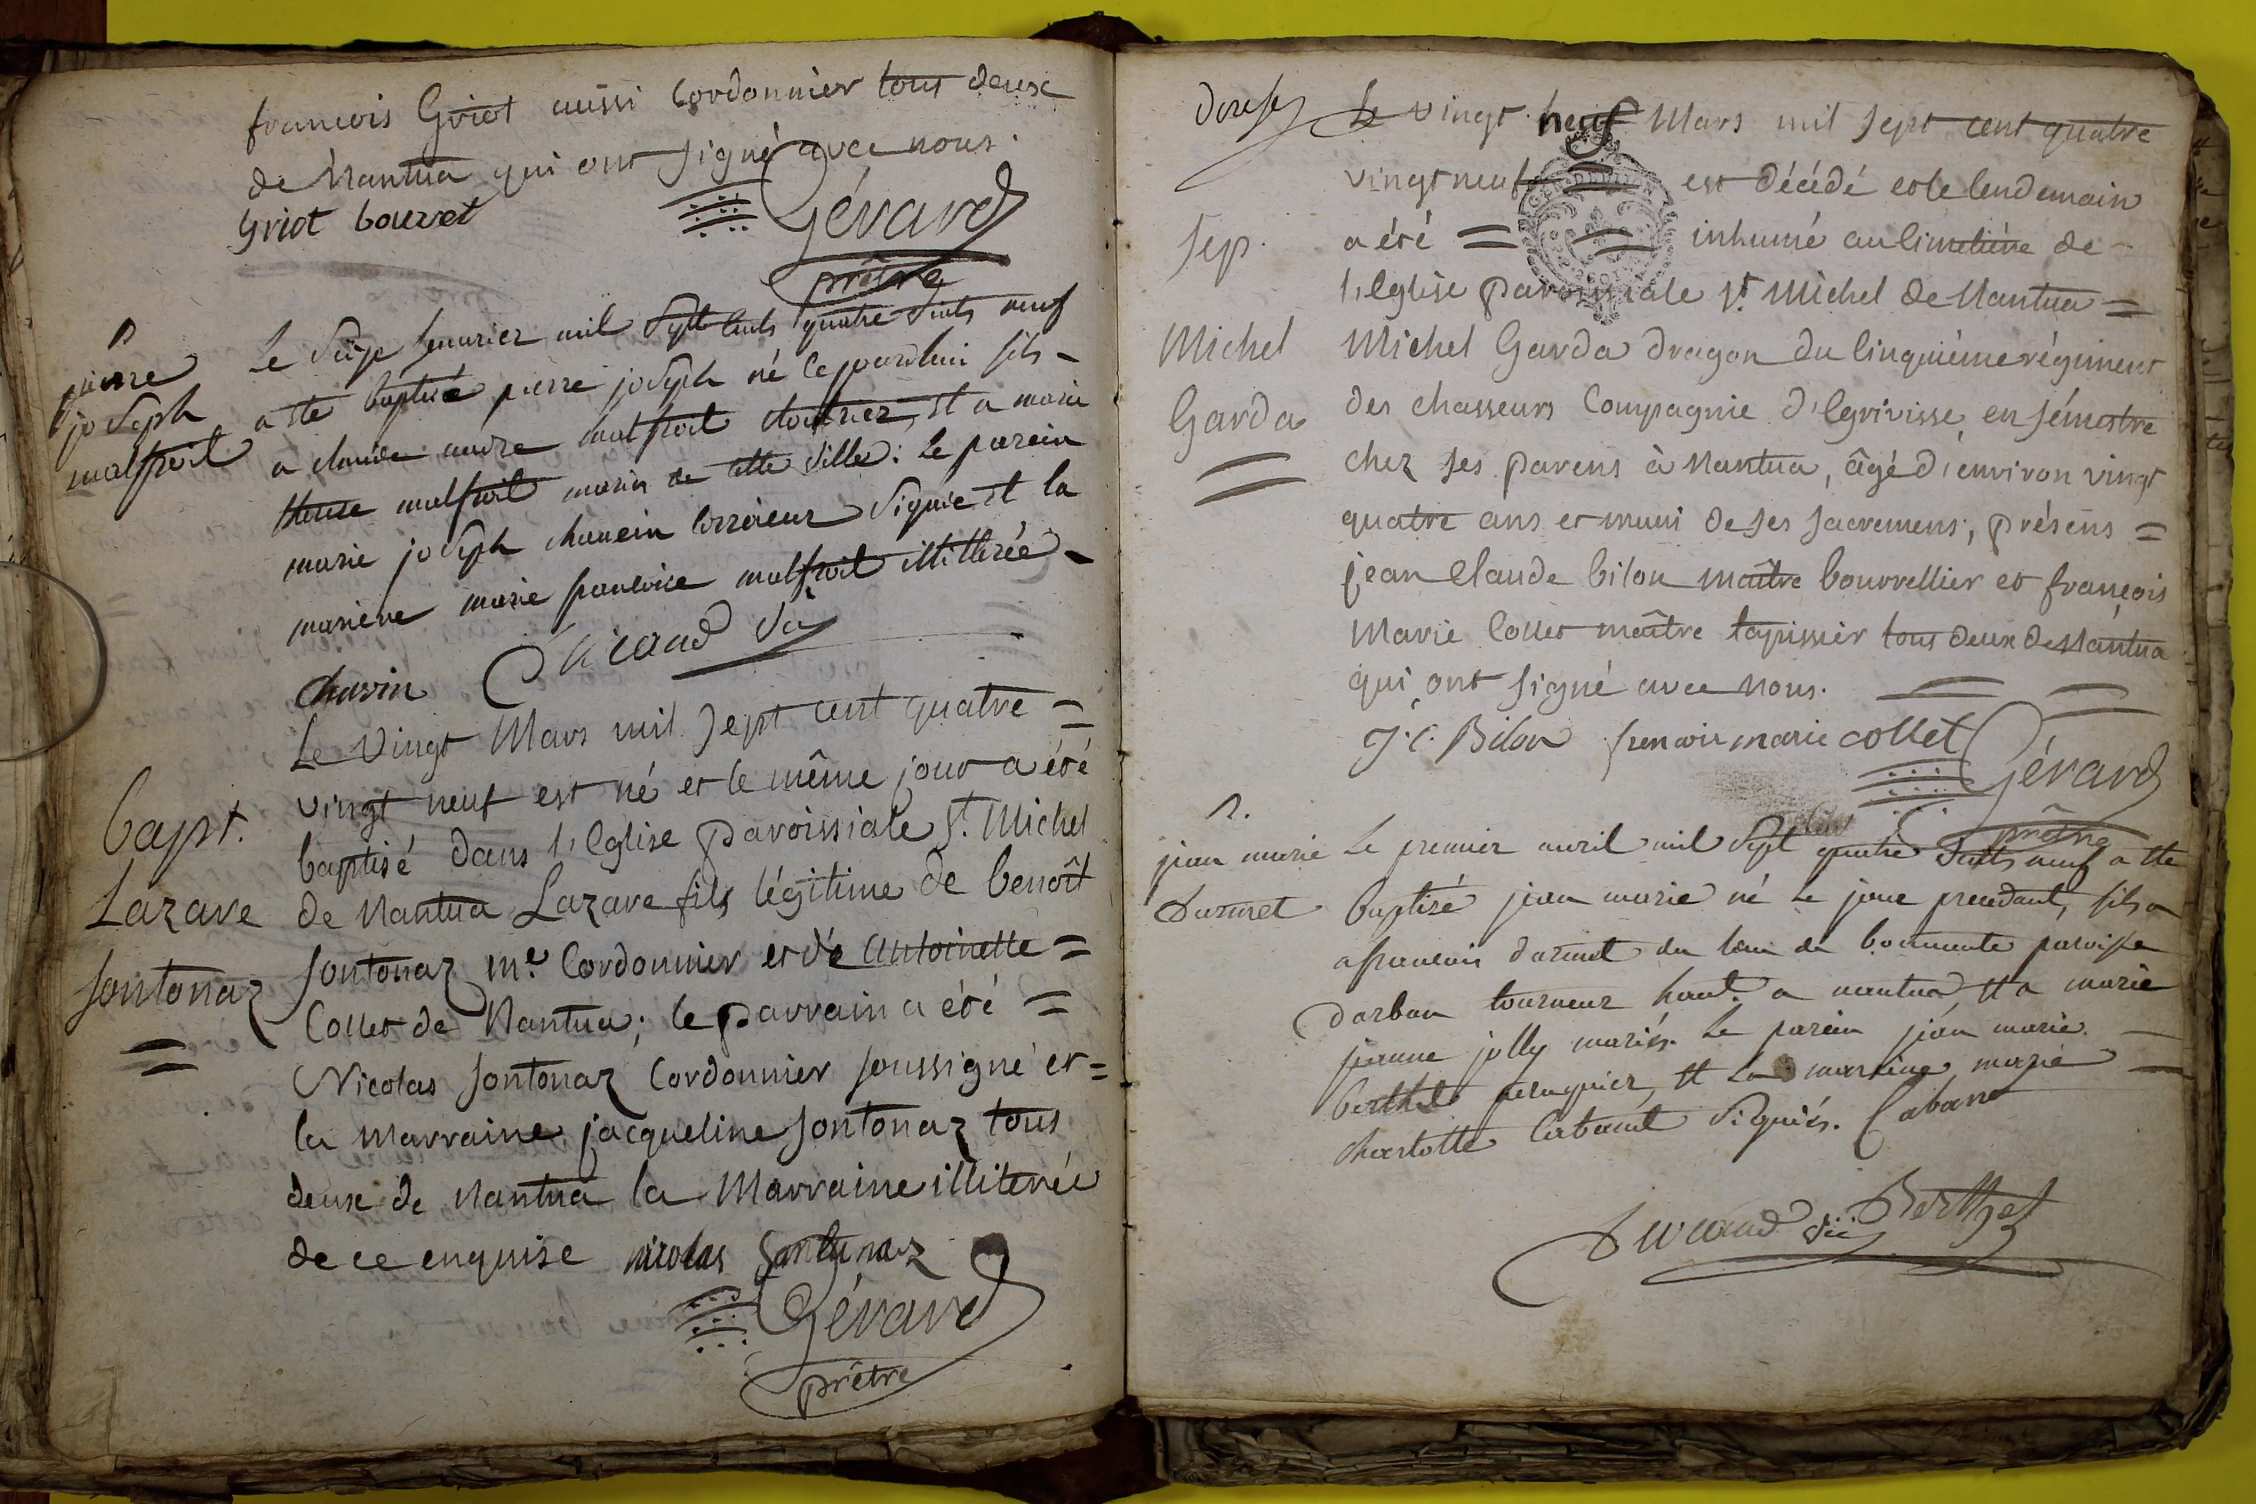 francois Griot aussi Cordonnier tous deux
de Nantua qui ont signé avec nous.
Griot bouvet Gérard
prêtre
pierre
joseph
malfroit
Le feuvrier mil Sept Cents quatre vints neuf
a ete baptisé pierre joseph né ce jourdhui fils
a claude andre malfroit et a marie
malfroit mariés de cette ville: Le parein
marie joseph Signie et la
mareine marie malfroit illitterée
chavin
Le Vingt Mars mil Sept cent quatre =
vingt neuf est né et le même jour a été
bapt. baptisé dans l'Eglise paroissiale St. Michel
Lazare de Nantua Lazare fils légitime de benoît
Sontonaz Sontonaz me. Cordonnier et de Antoinette =
Collet de Nantua; le parrain a été =
Nicolas Sontonaz Cordonnier soussigné et =
la Marraine jacqueline Sontonaz tous
deux de Nantua la Marraine illiterée
de ce enquise nicolas Sontonaz
Gérard
prêtre
Le Vingt neuf Mars mil Sept cent quatre
vingt neuf est décédé et le lendemain
Sep. a été = inhumé au Cimetière de
l'Eglise paroissiale St. Michel de Nantua =
Michel Michel Garda dragon du Cinquième régiment
Garda des chasseurs Compagnie d'Egrivisse, en sémestre
chez ses parens à Nantua, âgé d'environ vingt
quatre ans et muni de ses sacremens; présens =
jean Claude bilon maître bourrellier et françois
Marie Collet maître tapissier tous deux de Nantua
qui ont signé avec nous.
J. C. Bilon francois marie collet Gérard
prêtre
jean marie Le premier avril mil Sept cent quatre vints neuf a ete
Darmet baptisé jean marie né Le jour precedant, fils a
a francois darmet du paroisse
Darban tourneur habt. a nantua et a marie
jeanne jolly mariés. Le parein jean marie
berthet peruquier, et La mareine marie
charlotte Cabanet Signiés. Cabanet
Berthet